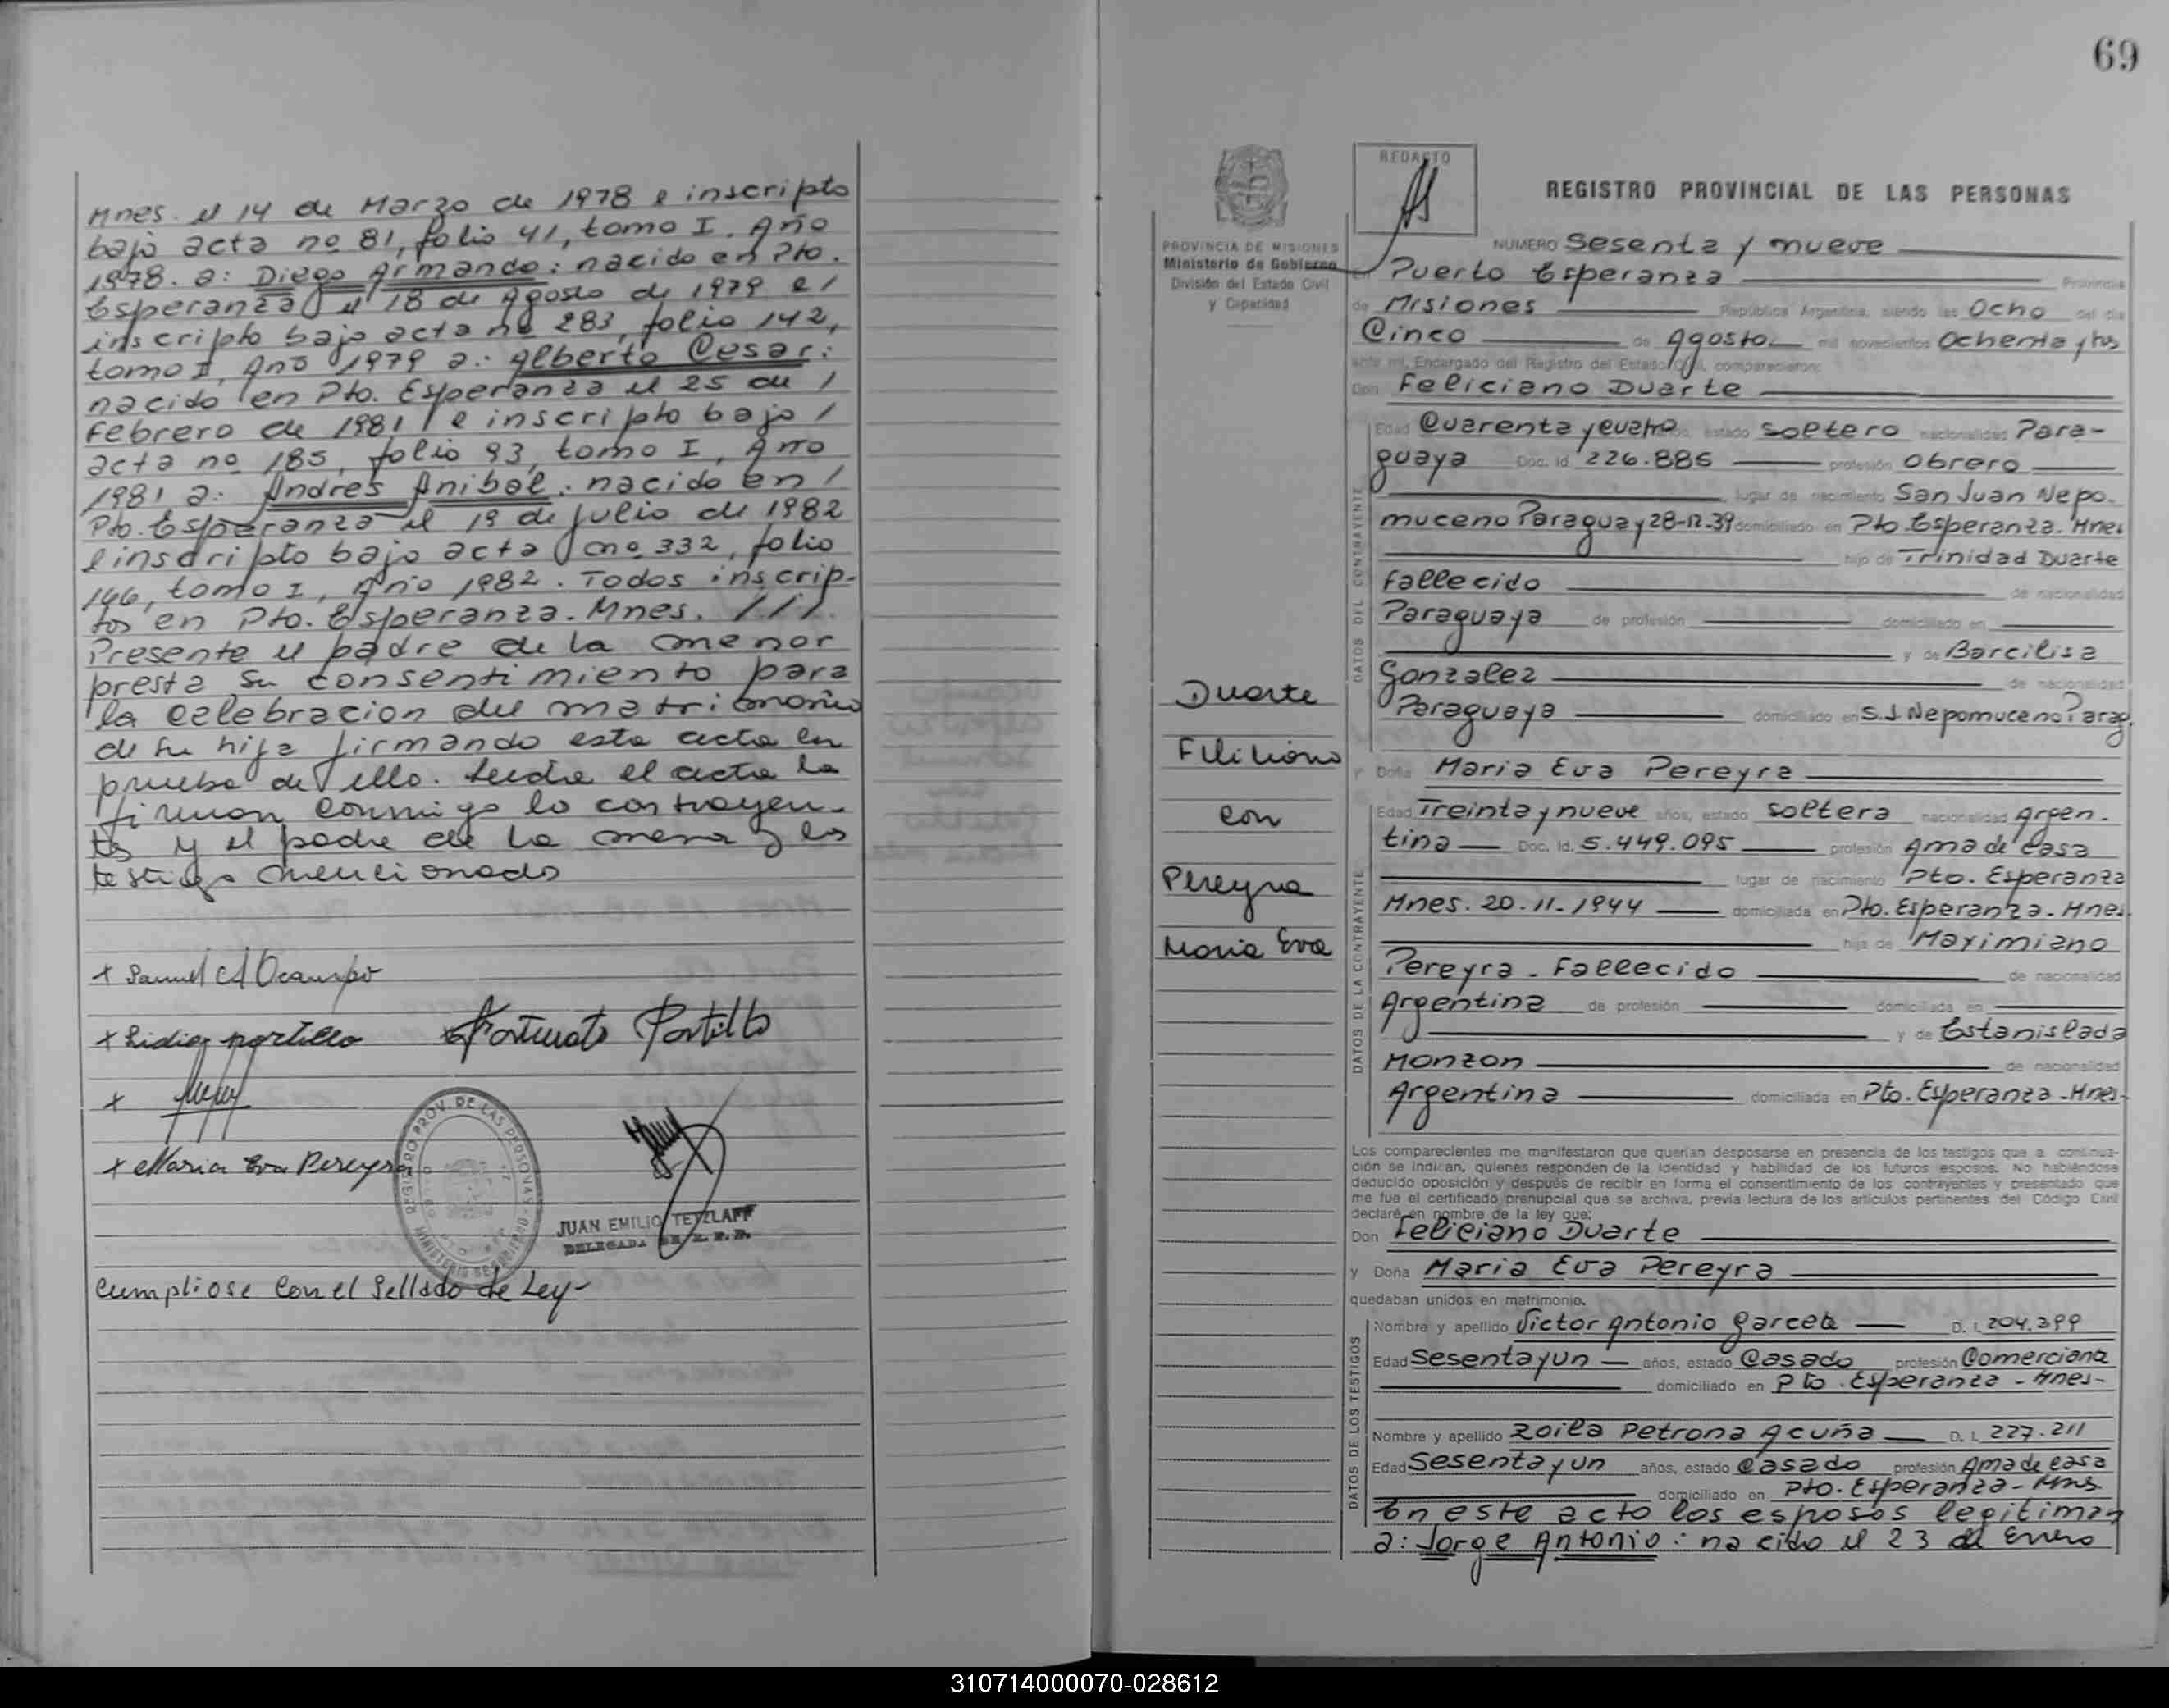 Mnes. el 14 de Marzo de 1978 e inscripto
bajo acta nº 81, folio 41, tomo I. Año
1978. a: Diego Armando: nacido en Pto.
Esperanza el 18 de Agosto de 1979 e/
inscripto bajo acta nº 283, folio 142,
tomo I, Año 1979 a: Alberto Cesar:
nacido en Pto. Esperanza el 25 de /
febrero de 1981 e inscripto bajo /
acta nº 185, folio 93, tomo I, Año
1981 a: Andres Anibal: nacido en /
Pto. Esperanza el 19 de julio de 1982
e inscripto bajo acta nº 332, folio
166, tomo I, Año 1982. Todos inscrip-
tos en Pto. Esperanza. Mnes. ///.
Presente el padre de la menor
presta su consentimiento para
la celebracion del matrimonio
de su hija firmando esta acta en
prueba de ello. Leida el acta la
firman conmigo lo contrayen-
tes y el padre de la menor y los
testigos mencionado
+ Samuel A Ocampo
+ Lidia portillo Fortunato Portillo
+
+ Maria Eva Pereyra
REGISTRO PROV. DE LAS PERSONAS
JUAN EMILIO TETZLAFF
DELEGADA DE R. P. P.
Cumpliose Con el Sellado de Ley-
69
PROVINCIA DE MISIONES
Ministerio de Gobierno
División del Estado Civil
y Capacidad
REDACTO
REGISTRO PROVINCIAL DE LAS PERSONAS
NUMERO Sesenta y nueve
En Puerto Esperanza Provincia
de Misiones República Argentina, siendo las Ocho del día
Cinco de Agosto mil novecientos Ochenta y tres
ante mí, Encargado del Registro del Estado Civil, comparecieron:
Don Feliciano Duarte
DATOS DEL CONTRAYENTE
Edad Cuarenta y cuatro años, estado Soltero nacionalidad Para-
guaya Doc. Id. 226.885 profesión Obrero
lugar de nacimiento San Juan Nepo-
muceno Paraguay 28-12-39 domiciliado en Pto. Esperanza. Mnes
hijo de Trinidad Duarte
Fallecido de nacionalidad
Paraguaya de profesión domiciliado en
y de Barcilisa
Gonzalez de nacionalidad
Paraguaya domiciliado en S.J. Nepomuceno Parag.
Duarte
Feliciano
con
Pereyra
Maria Eva
y Doña Maria Eva Pereyra
DATOS DE LA CONTRAYENTE
Edad Treinta y nueve años, estado Soltera nacionalidad Argen-
tina Doc. Id. 5.449.095 profesión Ama de casa
lugar de nacimiento Pto. Esperanza
Mnes. 20.11.1944 domiciliada en Pto. Esperanza. Mnes
hija de Maximiano
Pereyra - Fallecido de nacionalidad
Argentina de profesión domiciliada en
y de Estanislada
Monzon de nacionalidad
Argentina domiciliada en Pto. Esperanza - Mnes-
Los comparecientes me manifestaron que querían desposarse en presencia de los testigos que a continua-
ción se indican, quienes responden de la identidad y habilidad de los futuros esposos. No habiéndose
deducido oposición y después de recibir en forma el consentimiento de los contrayentes y presentado que
me fue el certificado prenupcial que se archiva, previa lectura de los artículos pertinentes del Código Civil
declaré en nombre de la ley que:
Don Feliciano Duarte
y Doña Maria Eva Pereyra
quedaban unidos en matrimonio.
DATOS DE LOS TESTIGOS
Nombre y apellido Victor Antonio Garcete D. I. 204.399
Edad Sesenta y un años, estado Casado profesión Comerciante
domiciliado en Pto. Esperanza - Mnes-
Nombre y apellido Zoila Petrona Acuña D. I. 227.211
Edad Sesenta y un años, estado Casado profesión Ama de casa
domiciliado en Pto. Esperanza - Mnes
En este acto los esposos legitiman
a: Jorge Antonio: nacido el 23 de Enero
310714000070-028612